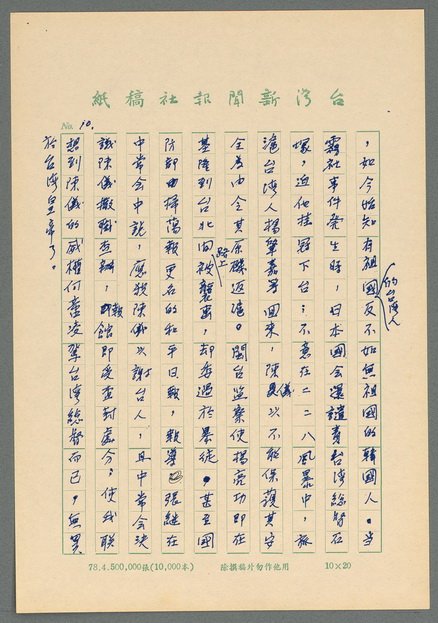 台灣新聞報社稿紙
No. 10.
，如今始知有祖國的台灣人反不如無祖國的韓國人。當
霧社事件發生時，日本國會還譴責台灣總督石
塚，迫他掛冠下台；不意在二二八風暴中，旅
滬台灣人楊肇嘉等回來，陳儀以不能保護其安
全為由令其原返滬。閩台監察使楊亮功即在
基隆到台北間路上被襲擊，却委過於暴徒。甚至國
防部由掃蕩報更名的和平日報，報導張繼在
中常會中說，應殺陳儀以謝台人，且中常會決
議陳儀撤職查辦，報館即受查封處分。使我聯
想到陳儀的威權何啻凌駕台灣總督而已，無異
於台灣皇帝了。
78.4.500,000張(10,000本)
除撰稿外勿作他用
10×20